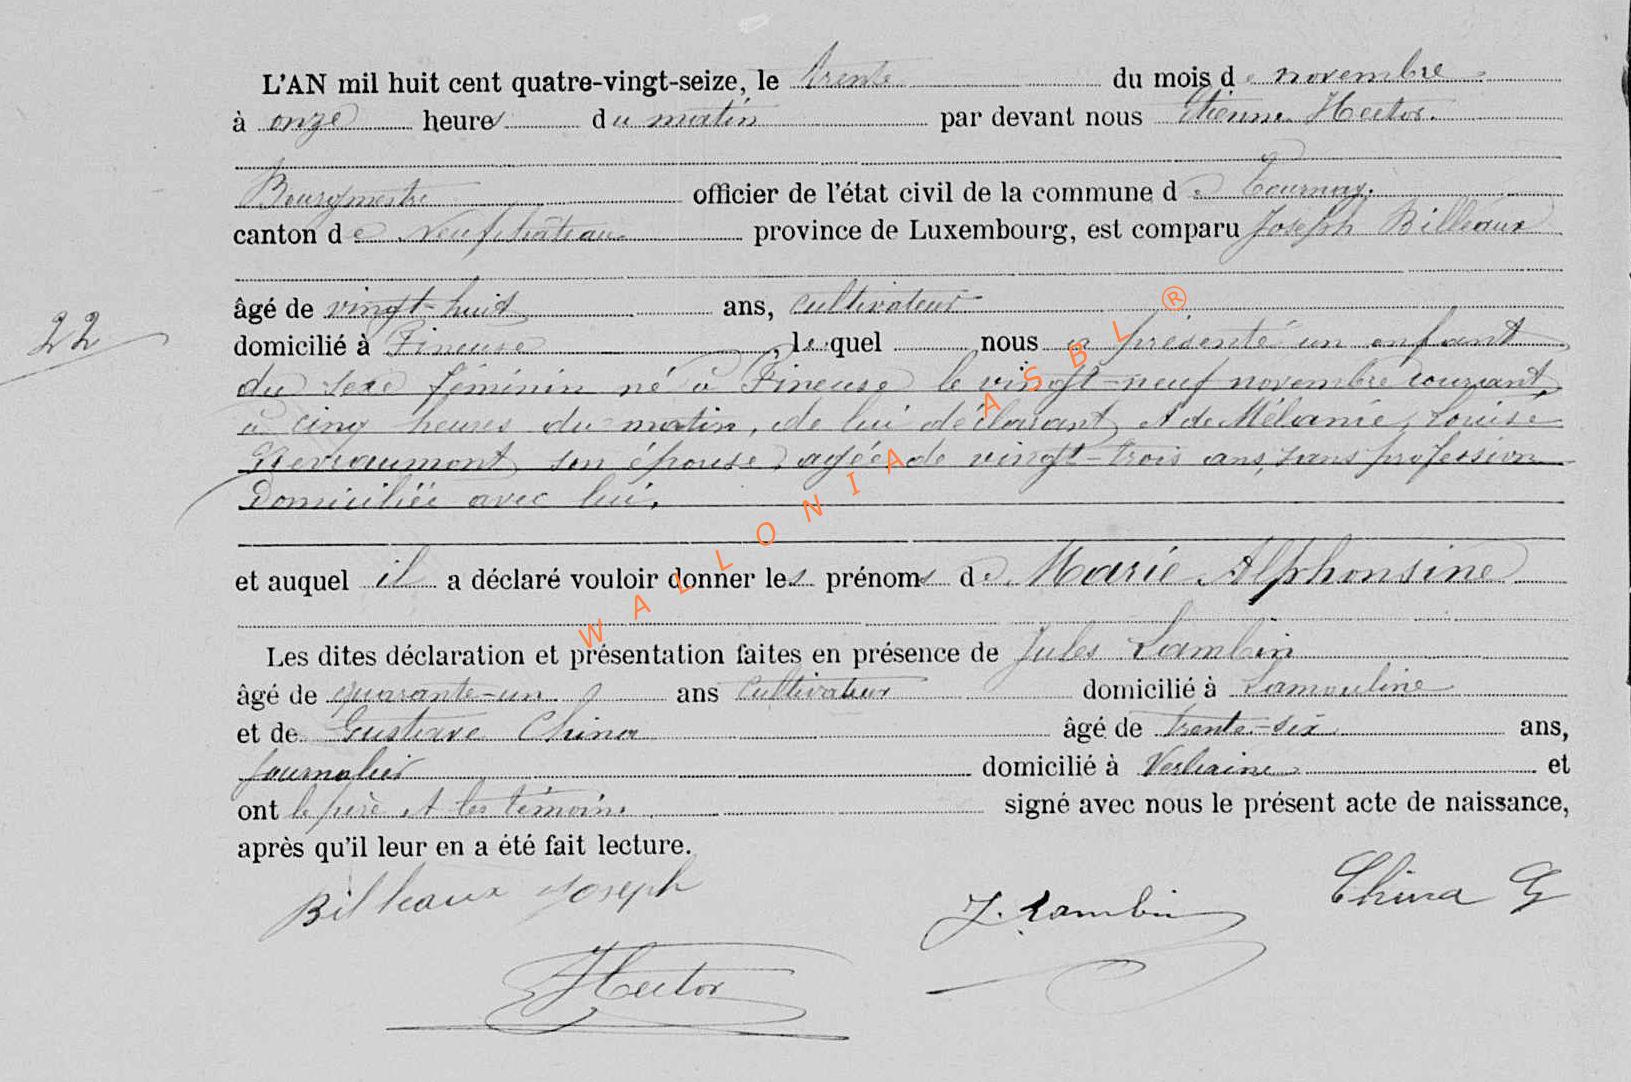 L'AN mil huit cent quatre-vingt-seize, le trente du mois de novembre
à onze heures du matin par devant nous Etienne Hector.
Bourgmestre officier de l'état civil de la commune de Tournay.
canton de Neufchâteau province de Luxembourg, est comparu Joseph Billeaux
âgé de vingt-huit ans, cultivateur
22
domicilié à Fineuse, lequel nous a présenté un enfant
du sexe féminin né à Fineuse le vingt-neuf novembre courant,
à cinq heures du matin, de lui déclarant et de Mélanie, Louise
son épouse, agée de vingt-trois ans, sans profession
Domiciliée avec lui.
et auquel il a déclaré vouloir donner les prénoms de Marie Alphonsine
Les dites déclaration et présentation faites en présence de Jules Lambin
âgé de quarante-un ans cultivateur domicilié à Lamouline
et de Gustave China âgé de trente-six ans,
journalier domicilié à Verlaine et
ont le père et les témoins signé avec nous le présent acte de naissance,
après qu'il leur en a été fait lecture.
Billeaux Joseph
J. Lambin
China G
Hector
WALLONIA ASBL ®